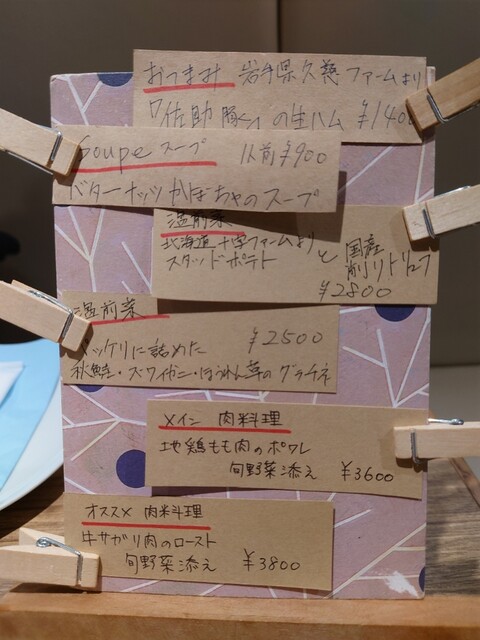 おつまみ 岩手県久慈ファームより
「佐助豚」の生ハム ¥140
Soupe スープ 1人前 ¥900
バターナッツかぼちゃのスープ
温前菜
北海道 十字ファームより
スタッドポテト と 国産削りトリュフ
¥2800
温前菜
¥2500
ッケリに詰めた
秋鮭・ズワイガニ・ほうれん草のグラチネ
メイン 肉料理
地鶏もも肉のポワレ
旬野菜添え ¥3600
オススメ 肉料理
牛サガリ肉のロースト
旬野菜添え ¥3800